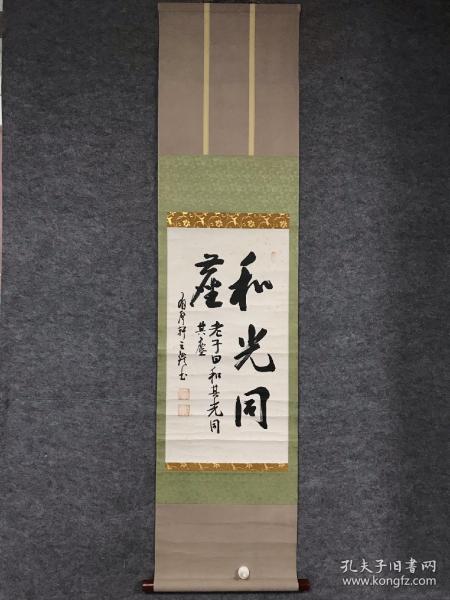 和光同
塵
老子曰和其光同
其塵
孔夫子旧书网
www.kongfz.com